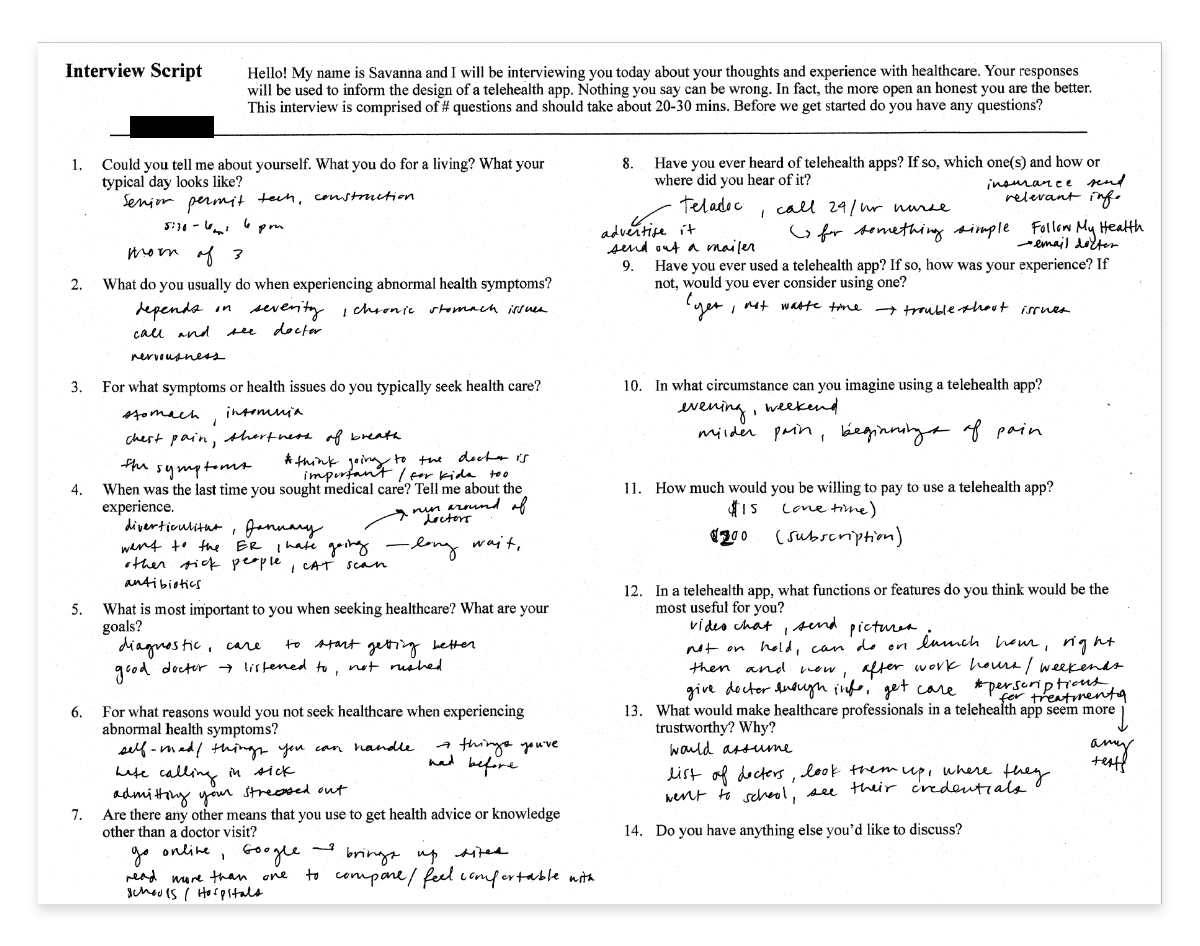 Interview Script
Hello! My name is Savanna and I will be interviewing you today about your thoughts and experience with healthcare. Your responses
will be used to inform the design of a telehealth app. Nothing you say can be wrong. In fact, the more open an honest you are the better.
This interview is comprised of # questions and should take about 20-30 mins. Before we get started do you have any questions?
1. Could you tell me about yourself. What you do for a living? What your
typical day looks like?
Senior permit tech, construction
5:30 - 6am, 6 pm
mom of 3
2. What do you usually do when experiencing abnormal health symptoms?
depends on severity, chronic stomach issues
call and see doctor
nervousness
3. For what symptoms or health issues do you typically seek health care?
stomach, insomnia
chest pain, shortness of breath
flu symptoms *think going to the doctor is
important / for kids too
4. When was the last time you sought medical care? Tell me about the
experience.
→ run around of
doctors
diverticulitus, January
went to the ER, hate going — long wait,
other sick people, CAT scan
antibiotics
5. What is most important to you when seeking healthcare? What are your
goals?
diagnostic, care to start getting better
good doctor → listened to, not rushed
6. For what reasons would you not seek healthcare when experiencing
abnormal health symptoms?
self-med/ things you can handle → things you've
had before
hate calling in sick
admitting your stressed out
7. Are there any other means that you use to get health advice or knowledge
other than a doctor visit?
go online, Google → brings up sites
read more than one to compare/ feel comfortable with
schools / Hospitals
8. Have you ever heard of telehealth apps? If so, which one(s) and how or
where did you hear of it?
insurance send
relevant info
Teladoc, call 24/hr nurse
advertise it
send out a mailer
↳ for something simple
Follow My Health
→ email doctor
9. Have you ever used a telehealth app? If so, how was your experience? If
not, would you ever consider using one?
yes, not waste time → troubleshoot issues
10. In what circumstance can you imagine using a telehealth app?
evening, weekend
milder pain, beginnings of pain
11. How much would you be willing to pay to use a telehealth app?
$15 (one time)
$200 (subscription)
12. In a telehealth app, what functions or features do you think would be the
most useful for you?
video chat, send pictures.
not on hold, can do on lunch hour, right
then and now, after work hours/ weekends
give doctor enough info, get care *perscriptions
for treatment
13. What would make healthcare professionals in a telehealth app seem more
trustworthy? Why?
any
tests
would assume
list of doctors, look them up, where they
went to school, see their credentials
14. Do you have anything else you'd like to discuss?